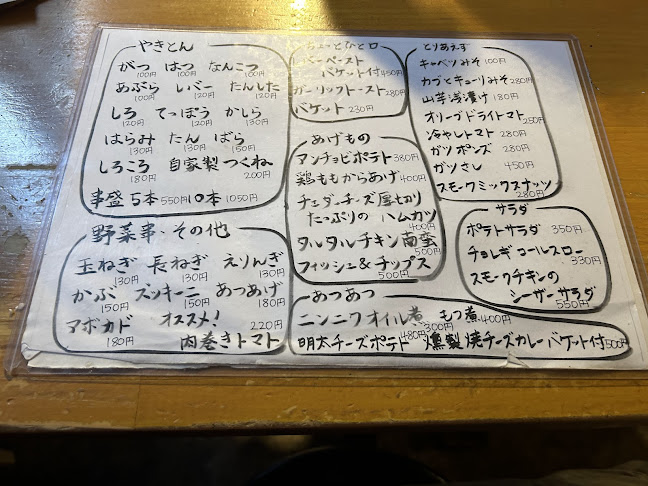 やきとん
がつ はつ なんこつ
100円 100円 100円
あぶら レバー たんした
120円 120円 120円
しろ てっぽう かしら
120円 120円 130円
はらみ たん ばら
130円 130円 150円
しろころ 自家製つくね
180円 200円
串盛 5本 550円 10本 1050円
野菜串・その他
玉ねぎ 長ねぎ えりんぎ
130円 130円 130円
かぶ ズッキーニ あつあげ
150円 150円 180円
アボカド オススメ! 220円
180円 肉巻きトマト
ちょっとひと口
レバーペースト
バケット付 450円
ガーリックトースト 280円
バケット 230円
あげもの
アンチョビポテト 380円
鶏ももからあげ 400円
チェダーチーズ厚切り
たっぷりの ハムカツ
400円
タルタルチキン南蛮
500円
フィッシュ&チップス
500円
とりあえず
キャベツみそ 100円
カブとキューリみそ 280円
山芋浅漬け 180円
オリーブドライトマト
250円
冷やしトマト 280円
ガツポンズ 280円
ガツさし 450円
スモークミックスナッツ
280円
サラダ
ポテトサラダ 350円
チョレギコールスロー
330円
スモークチキンの
シーザーサラダ
550円
あつあつ
ニンニクオイル煮 もつ煮 400円
300円
明太チーズポテト 480円 燻製焼チーズカレーバケット付 500円